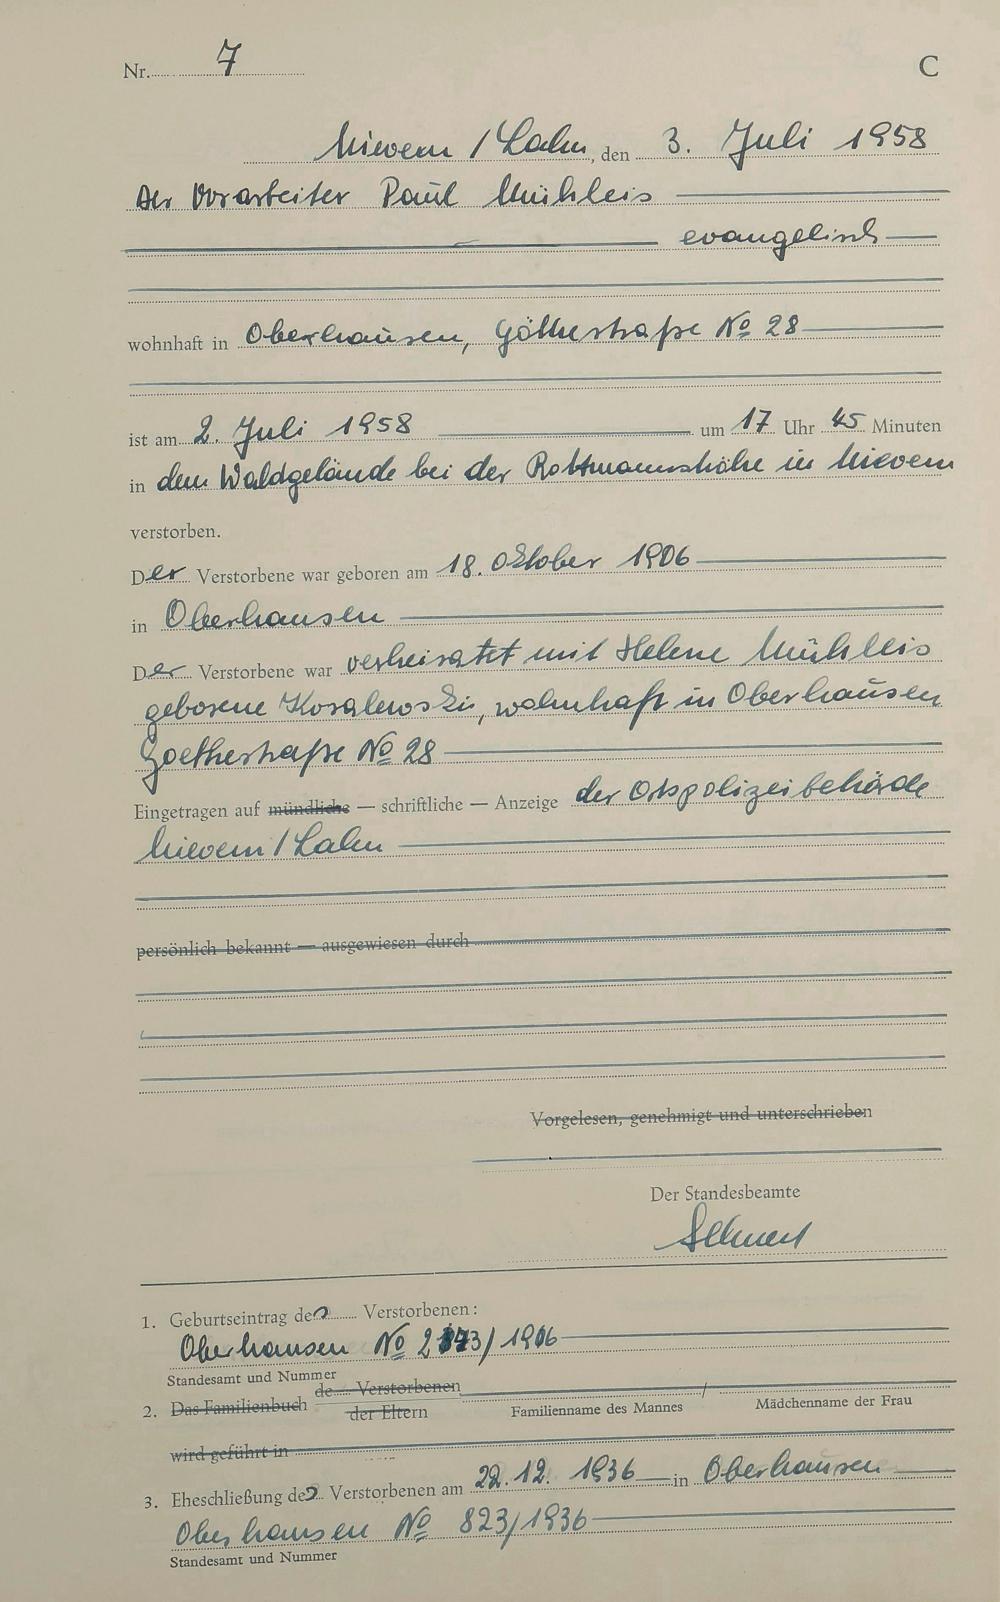 Nr. 7
C
Nievern / Lahn, den 3. Juli 1958
Der Vorarbeiter Paul Mühleis
evangelisch
wohnhaft in Oberhausen, Göthestraße No 28
ist am 2. Juli 1958 um 17 Uhr 45 Minuten
in dem Waldgelände bei der Rottmannshöhe in Nievern
verstorben.
Der Verstorbene war geboren am 18. Oktober 1906
in Oberhausen
Der Verstorbene war verheiratet mit Helene Mühleis
geborene Kosalewski, wohnhaft in Oberhausen
Goethestraße No 28
Eingetragen auf mündliche — schriftliche — Anzeige der Ortspolizeibehörde
Nievern / Lahn
persönlich bekannt — ausgewiesen durch
Vorgelesen, genehmigt und unterschrieben
Der Standesbeamte
1. Geburtseintrag des Verstorbenen:
Oberhausen No /1906
Standesamt und Nummer
2. Das Familienbuch de Verstorbenen
der Eltern
Familienname des Mannes / Mädchenname der Frau
wird geführt in
3. Eheschließung des Verstorbenen am 22. 12. 1936 in Oberhausen
Oberhausen No 823/1936
Standesamt und Nummer